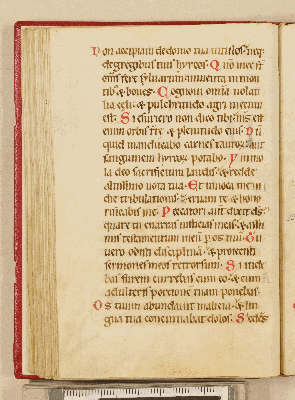 Non accipiam de domo tua uitulos: neq;
de gregibus tuis hyrcos. Quō mee st̄
om̄s fere siluarum: iumenta in mon
tib; & boues. Cognoui omīa uolati
lia celi: & pulchritudo agri mecum
est. Si esuriero non dicā tibi: m̄s est
enim orbis tr̄e & plenitudo eius. Nū
quid manducabo carnes tauror: aut
sanguinem hyrcor potabo. Ymmo
la deo sacrificium laudis: & redde
altissimo uota tua. Et inuoca me in
die tribulationis: & eruam te & hono
rificabis me. Peccatori aut̄ dixit ds̄:
quare tu enarras iusticias meas: & assu
mis testamentum meū p os tuū. Tu
uero odisti disciplinā: & proiecisti
sermones meos retrorsum. Si uide
bas furem currebas cum eo: & cum
adulteris portionē tuam ponebas.
Os tuum abundauit malicia: & lin
gua tua concinnabat dolos. Sedēs